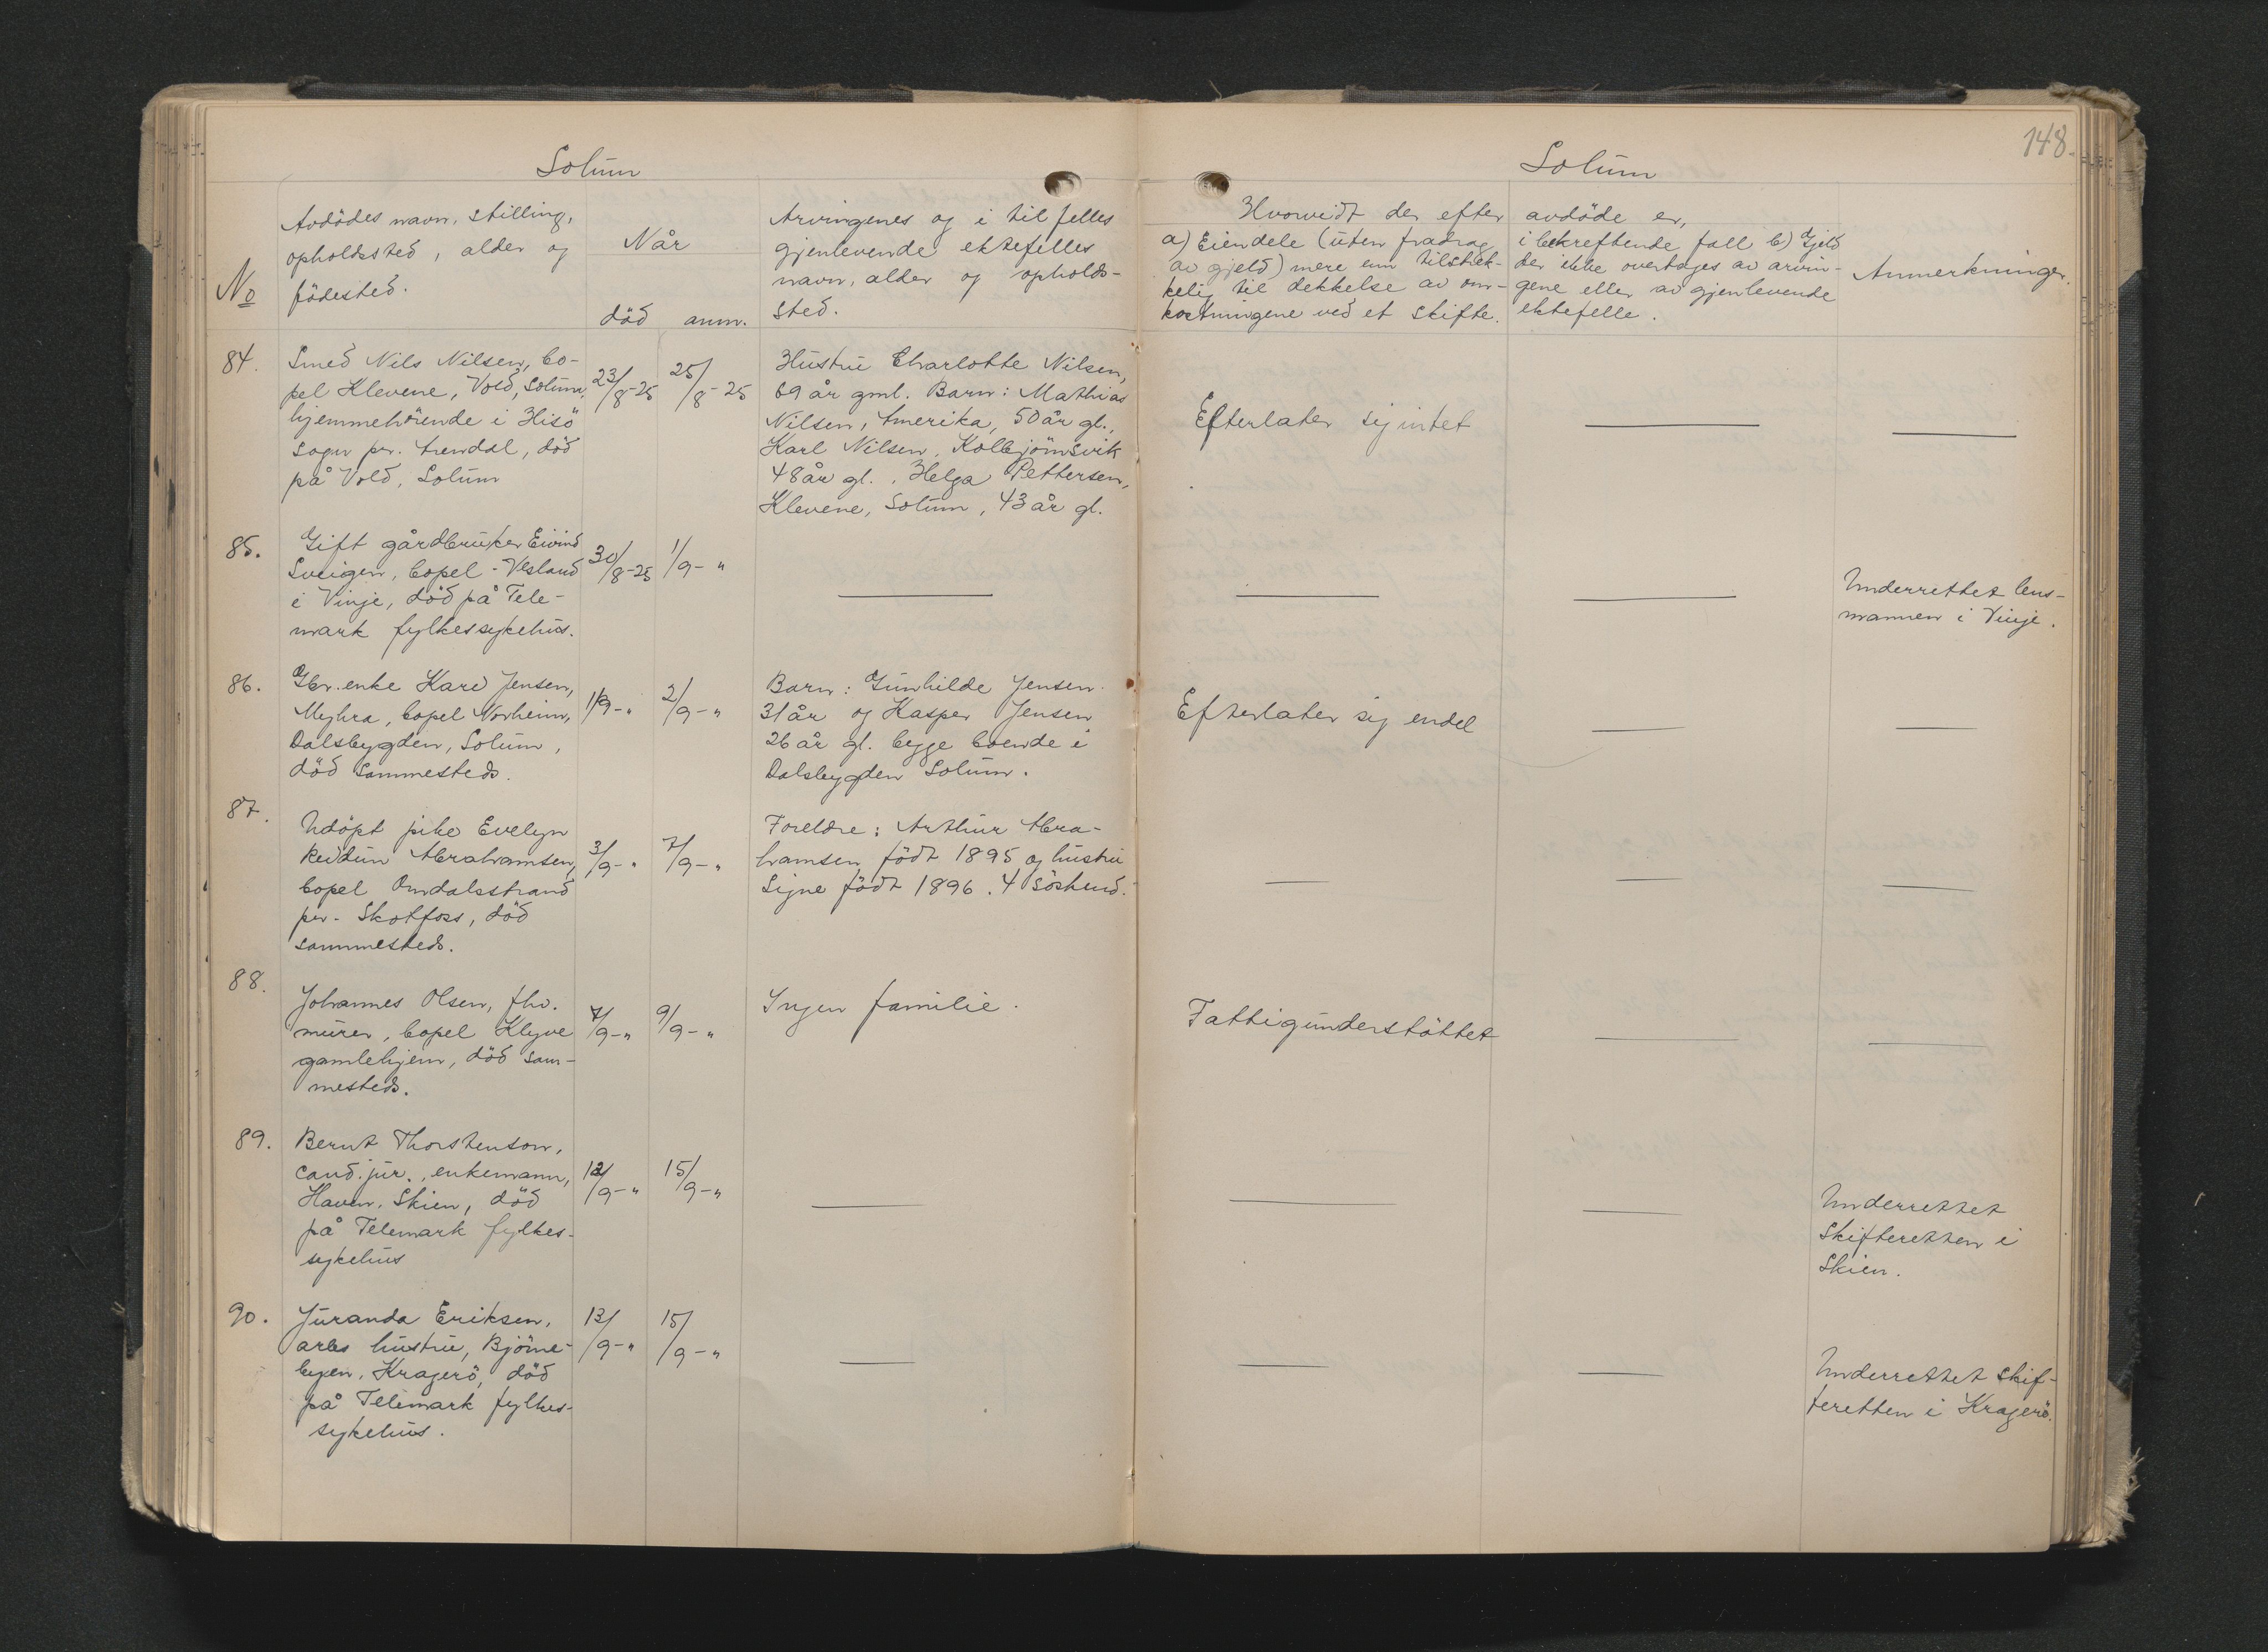 Solum
No
Avdödes navn, stilling,
opholdssted, alder og
födested.
Når
död anm.
Arvingenes og i til felles
gjenlevende ektefelles
navn, alder og opholds-
sted.
84.
Smed Nils Nilsen, bo-
pel Klevene, Vold, Solum,
hjemmehörende i Hisö
sogn pr. Arendal, död
på Vold, Solum
23/8-25
25/8-25
Hustru Charlotte Nilsen,
69 år gml. Barn: Mathias
Nilsen, Amerika, 50 år gl.,
Karl Nilsen, Kolbjörnsvik
48 år gl., Helga Pettersen,
Klevene, Solum, 43 år gl.
85.
Gift gårdbruker Eivind
Sveigen, bopel - Vesland
i Vinje, död på Tele-
mark fylkessykehus.
30/8-25
1/9- "
86.
Gbr. enke Karen Jensen,
Myhra, bopel Norheim,
Dalsbygden, Solum,
död sammesteds.
1/9- "
2/9- "
Barn: Gunhilde Jensen
31 år og Kasper Jensen
26 år gl. begge boende i
Dalsbygden Solum.
87.
Udöpt pike Evelyn
Reidun Abrahamsen,
bopel Omdalsstrand
pr. Skotfoss, död
sammesteds.
3/9- "
7/9- "
Foreldre: Arthur Abra-
hamsen födt 1895 og hustru
Signe födt 1896. 4 söskend.
88.
Johannes Olsen, fhv.
murer, bopel Klyve
gamlehjem, död sam-
mesteds.
7/9- "
9/9- "
Ingen familie.
89.
Bernt Thorstenson,
cand. jur., enkemann,
Haven, Skien, död
på Telemark fylkes-
sykehus
12/9- "
15/9- "
90.
Juranda Eriksen,
arbs hustru, Björne-
byen, Kragerö, död
på Telemark fylkes-
sykehus.
13/9- "
15/9- "
148.
Solum
Hvorvidt der efter avdöde er,
a) Eiendele (uten fradrag
av gjeld) mere enn tilstrek-
kelig til dekkelse av om-
kostningene ved et skifte.
i bekreftende fall b) Gjeld
der ikke overtages av arvin-
gene eller av gjenlevende
ektefelle.
Anmerkninger.
Efterlater sig intet
Underrettet lens-
mannen i Vinje.
Efterlater sig endel
Fattigunderstöttet
Underrettet
Skifteretten i
Skien.
Underrettet skif-
teretten i Kragerö.